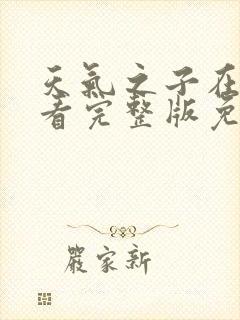 天氣之子在
看完整版免
嚴家新